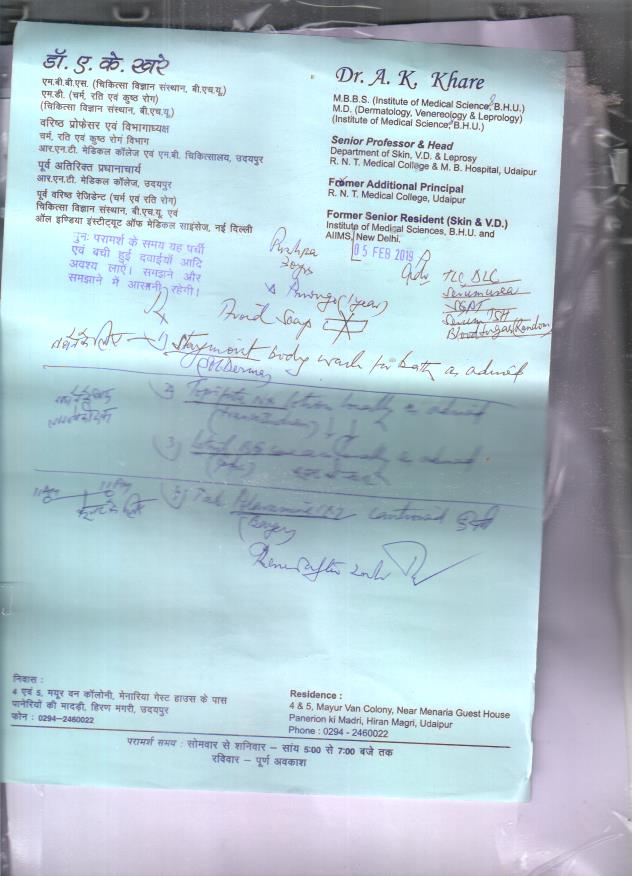 डॉ. ए. के. खरे
एम.बी.बी.एस. (चिकित्सा विज्ञान संस्थान, बी.एच.यू.)
एम.डी. (चर्म, रति एवं कुष्ठ रोग)
(चिकित्सा विज्ञान संस्थान, बी.एच.यू.)
वरिष्ठ प्रोफेसर एवं विभागाध्यक्ष
चर्म, रति एवं कुष्ठ रोग विभाग
आर.एन.टी. मेडिकल कॉलेज एवं एम.बी. चिकित्सालय, उदयपुर
पूर्व अतिरिक्त प्रधानाचार्य
आर.एन.टी. मेडिकल कॉलेज, उदयपुर
पूर्व वरिष्ठ रेजिडेन्ट (चर्म एवं रति रोग)
चिकित्सा विज्ञान संस्थान, बी.एच.यू. एवं
ऑल इण्डिया इंस्टीट्यूट ऑफ मेडिकल साइंसेज, नई दिल्ली
Dr. A. K. Khare
M.B.B.S. (Institute of Medical Science, B.H.U.)
M.D. (Dermatology, Venereology & Leprology)
(Institute of Medical Science, B.H.U.)
Senior Professor & Head
Department of Skin, V.D. & Leprosy
R. N. T. Medical College & M. B. Hospital, Udaipur
Former Additional Principal
R. N. T. Medical College, Udaipur
Former Senior Resident (Skin & V.D.)
Institute of Medical Sciences, B.H.U. and
AIIMS, New Delhi.
पुनः परामर्श के समय यह पर्ची
एवं बची हुई दवाईयाँ आदि
अवश्य लाएं। समझने और
समझाने में आसानी रहेगी।
05 FEB 2019
Pushpa
30yrs
(1 year)
Adv TLC DLC
Serum urea
SGPT
Serum TSH
Blood sugar Random
Rx
Avoid Soap
1) body wash for bath as advised
2) lotion locally as advised
3) locally as advised
4) Tab
Review after
निवास :
4 एवं 5, मयूर वन कॉलोनी, मेनारिया गेस्ट हाउस के पास
पानेरियों की मादड़ी, हिरण मगरी, उदयपुर
फोन : 0294-2460022
Residence :
4 & 5, Mayur Van Colony, Near Menaria Guest House
Panerion ki Madri, Hiran Magri, Udaipur
Phone : 0294 - 2460022
परामर्श समय : सोमवार से शनिवार – सांय 5:00 से 7:00 बजे तक
रविवार – पूर्ण अवकाश